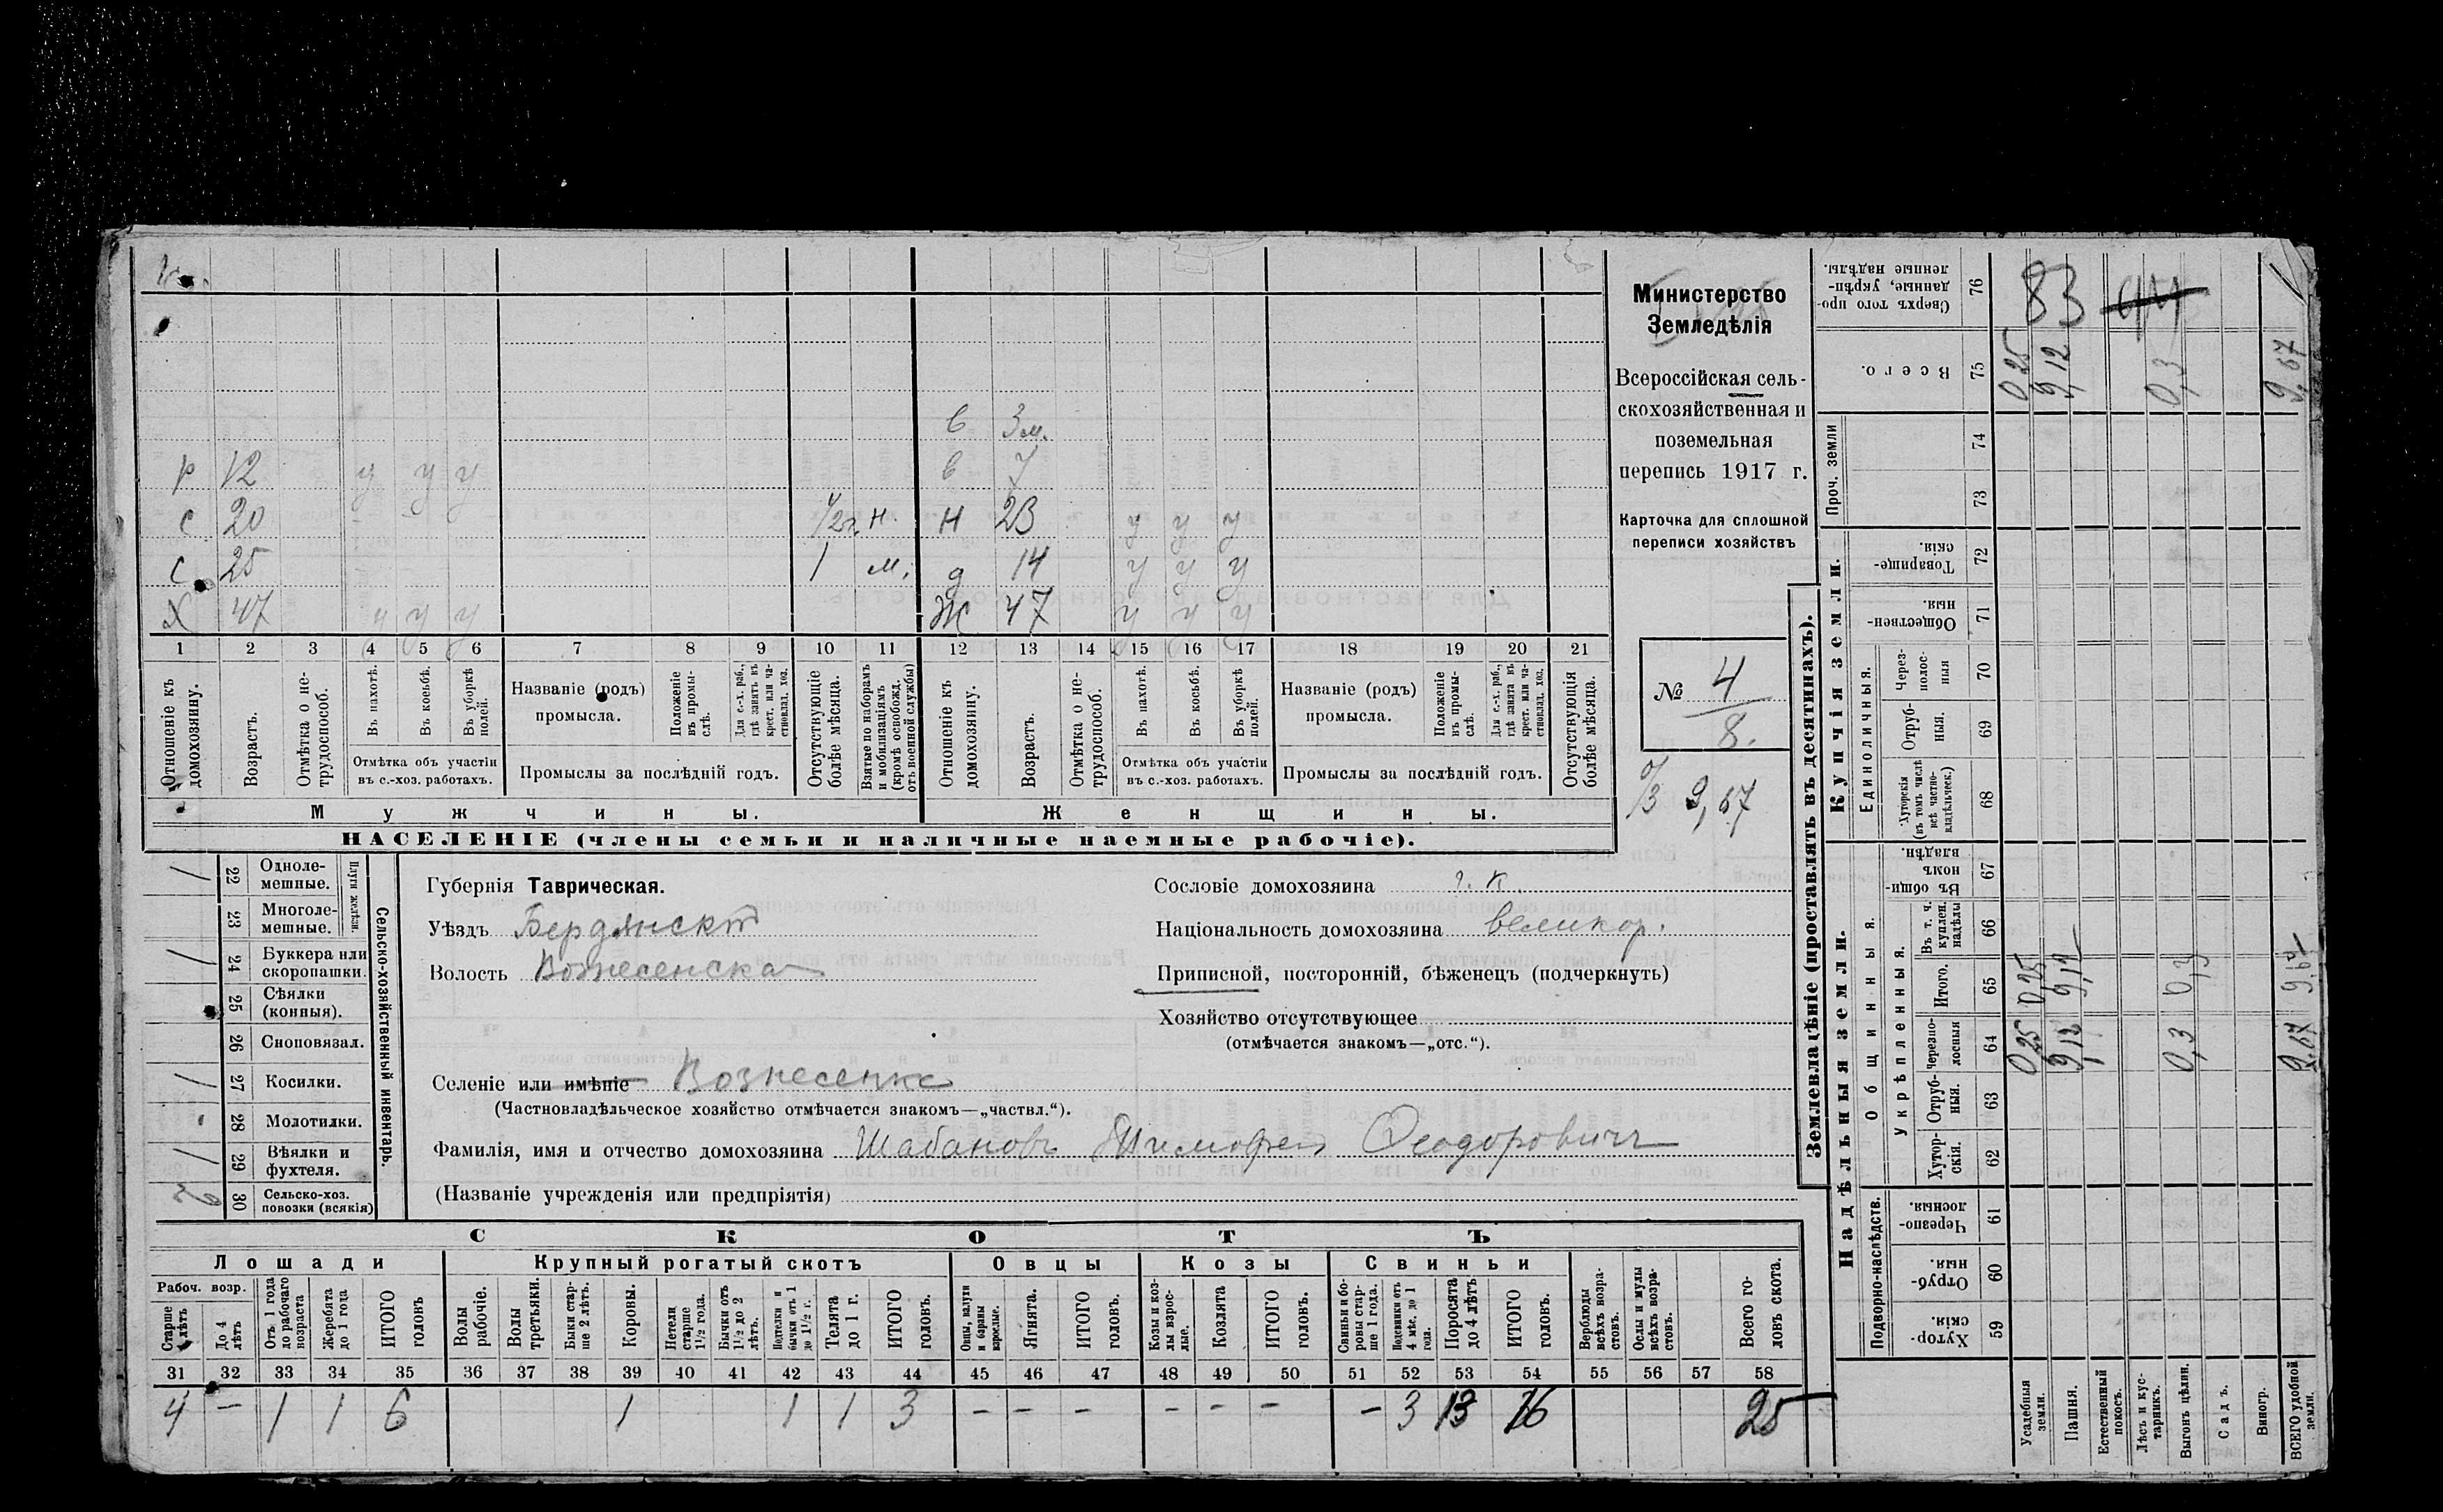 в 3 м.
р 12 у у у в 7
с 20 1/2 г. н. н 23 у у у
с 25 1 м. д 14 у у у
х 47 у у у Ж 47 у у у
1 2 3 4 5 6 7 8 9 10 11 12 13 14 15 16 17 18 19 20 21
Отношеніе къ домохозяину.
Возрастъ.
Отмѣтка о нетрудоспособ.
Въ пахотѣ.
Въ косьбѣ.
Въ уборкѣ полей.
Отмѣтка объ участіи
въ с.-хоз. работахъ.
Названіе (родъ)
промысла.
Положеніе въ промыслѣ.
Для с.-х. раб., гдѣ занятъ въ крест. или частновлад. хоз.
Промыслы за послѣдній годъ.
Отсутствующіе болѣе мѣсяца.
Взятые по наборамъ и мобилизаціямъ (кромѣ освобожд. отъ военной службы)
Отношеніе къ домохозяину.
Возрастъ.
Отмѣтка о нетрудоспособ.
Въ пахотѣ.
Въ косьбѣ.
Въ уборкѣ полей.
Отмѣтка объ участіи
въ с.-хоз. работахъ.
Названіе (родъ)
промысла.
Положеніе въ промыслѣ.
Для с.-х. раб., гдѣ занята въ крест. или частновлад. хоз.
Промыслы за послѣдній годъ.
Отсутствующія болѣе мѣсяца.
Мужчины. Женщины.
НАСЕЛЕНІЕ (члены семьи и наличные наемные рабочіе).
Министерство
Земледѣлія
Всероссійская сель-
скохозяйственная и
поземельная
перепись 1917 г.
Карточка для сплошной
переписи хозяйствъ
№ 4
8.
9,67
Сельско-хозяйственный инвентарь.
Плуги желѣзн.
22 Одноле-
мешные. /
23 Многоле-
мешные.
24 Буккера или
скоропашки. /
25 Сѣялки
(конныя).
26 Сноповязал.
27 Косилки. /
28 Молотилки.
29 Вѣялки и
фухтеля. /
30 Сельско-хоз.
повозки (всякія)
Губернія Таврическая.
Уѣздъ Бердянскъ
Волость Вознесенска
Сословіе домохозяина г. к.
Національность домохозяина великор.
Приписной, посторонній, бѣженецъ (подчеркнуть)
Хозяйство отсутствующее
(отмѣчается знакомъ—„отс.“).
Селеніе или имѣніе Вознесенка
(Частновладѣльческое хозяйство отмѣчается знакомъ—„частвл.“).
Фамилія, имя и отчество домохозяина Шабановъ Тимофей Феодоровичъ
(Названіе учрежденія или предпріятія)
СКОТЪ
Лошади Крупный рогатый скотъ Овцы Козы Свиньи
Рабоч. возр.
Старше 4 лѣтъ
До 4 лѣтъ
Отъ 1 года до рабочаго возраста
Жеребята до 1 года
ИТОГО головъ
Волы рабочіе.
Волы третьяки.
Быки старше 2 лѣтъ.
Коровы.
Нетели старше 1½ года.
Бычки отъ 1½ до 2 лѣтъ.
Подтелки и бычки отъ 1 до 1½ г.
Телята до 1 г.
ИТОГО головъ.
Овцы, валухи и бараны взрослые.
Ягнята.
ИТОГО головъ.
Козы и козлы взрослые.
Козлята
ИТОГО головъ.
Свиньи и боровы старше 1 года.
Подсвинки отъ 4 мѣс. до 1 года.
Поросята до 4 лѣтъ
ИТОГО головъ.
Верблюды всѣхъ возрастовъ.
Ослы и мулы всѣхъ возрастовъ.
Всего головъ скота.
31 32 33 34 35 36 37 38 39 40 41 42 43 44 45 46 47 48 49 50 51 52 53 54 55 56 57 58
4 — 1 1 6 1 1 1 3 — — — — — — — 3 13 16 25
Землевладѣніе (проставлять въ десятинахъ).
Сверхъ того проданные, укрѣпленные надѣлы. 76 83
Всего. 75 0,25 9,12 0,3 9,67
Проч. земли 74
73
Купчія земли.
Товарищескія. 72
Общественныя. 71
Единоличныя.
Черезполосныя 70
Отрубныя. 69
Хуторскія (въ томъ числѣ всѣ частновладѣльческ.) 68
Надѣльныя земли.
Общинныя.
Въ общинномъ владѣн. 67
Укрѣпленныя.
Въ т. ч. куплен. надѣлы 66
Итого. 65 0,25 9,12 0,3 9,67
Черезполосныя 64 0,25 9,12 0,3 9,67
Отрубныя. 63
Хуторскія. 62
Подворно-наслѣдств.
Черезполосныя. 61
Отрубныя. 60
Хуторскія. 59
Усадебныя земли.
Пашня.
Естественный покосъ.
Лѣсъ и кустарникъ.
Выгонъ цѣлин.
Садъ.
Виногр.
ВСЕГО удобной земли.